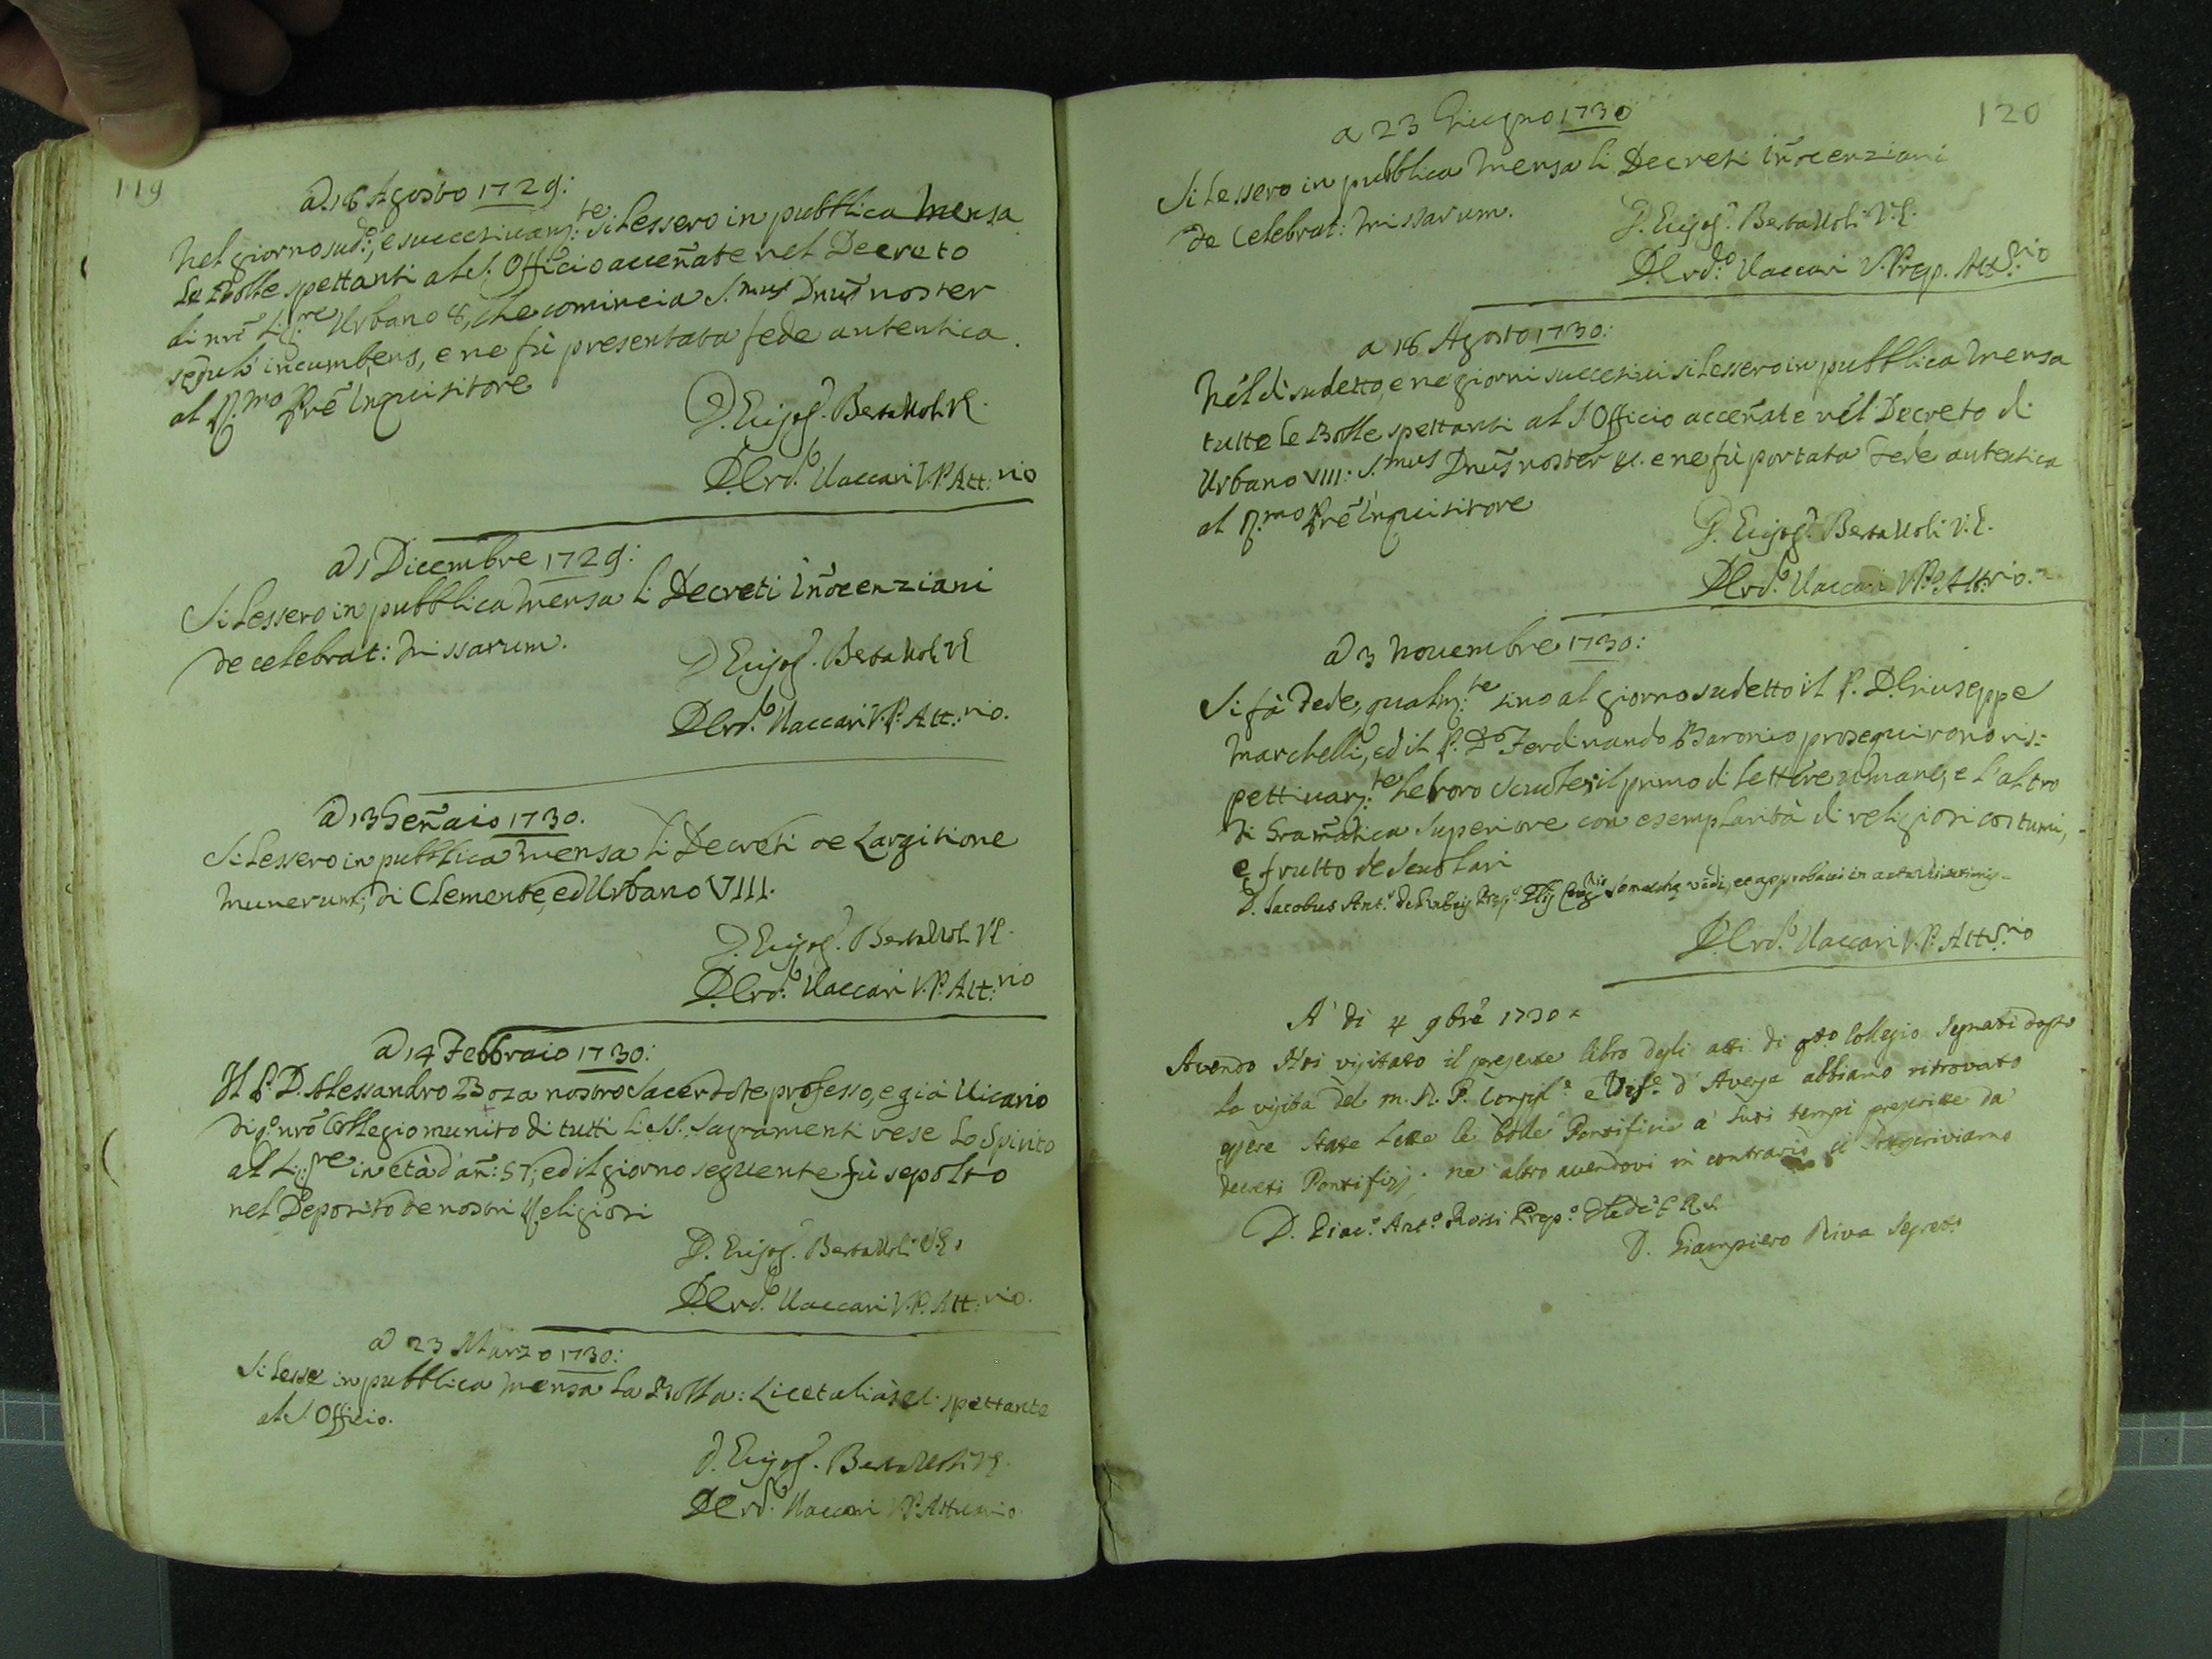 119
A 16 Agosto 1729:
Nel giorno sud.o, e successivam.te si lessero in pubblica Mensa
Le Bolle spettanti al S. Officio acceñate nel Decreto
di nrõ Sig.re Urbano 8, che comincia S.mus Dnus noster
sedulò incumbens, e ne fù presentata fede autentica
al R.mo Prẽ Inquisitore
D. Bertazzoli
D. Vaccari V.P. Att:rio
A 1 Dicembre 1729:
Si lessero in pubblica Mensa li Decreti Iñocenziani
de celebrat: Missarum.
D. Bertazzoli
D. Vaccari V.P. Att:rio.
A 13 Geñaio 1730.
Si lessero in pubblica Mensa li Decreti de Largitione
Munerum, di Clemente, ed Urbano VIII.
D. Bertazzoli
D. Vaccari V.P. Att:rio
A 14 Febbraio 1730:
Il P. D. Alessandro Boza nostro Sacerdote professo, e già Vicario
di q.o nrõ Collegio munito di tutti li SS. Sagramenti rese lo Spirito
al Sig.re in età d'an: 57, ed il giorno seguente fù sepolto
nel Deposito de nostri Religiosi
D. Bertazzoli
D. Vaccari V.P. Att:rio.
A 23 Marzo 1730:
Si lesse in pubblica Mensa la Bolla: Licet aliàs &. spettante
al S. Officio.
D. Bertazzoli
D. Vaccari V.P. Attuario
120
a 23 Giugno 1730
Si lessero in pubblica Mensa li Decreti Iñocenziani
de Celebrat: Missarum.
D. Bertazzoli
D. Vaccari V. Prep. Att.rio
a 16 Agosto 1730:
Nel dì sudetto, e ne giorni successivi si lessero in pubblica Mensa
tutte le Bolle spettanti al S. Officio acceñate nel Decreto di
Urbano VIII: S.mus Dnus noster &. e ne fù portata fede autentica
al R.mo Prẽ Inquisitore
D. Bertazzoli
D. Vaccari V.P. Att:rio.
A 3 Novembre 1730:
Si fà Fede, qualm.te sino al giorno sudetto il P. D. Giuseppe
Marchelli, ed il P. D. Ferdinando Baronio proseguirono ris:
pettivam.te le loro Scuole; il primo di lettere umane, e l'altro
di Gram̃atica Superiore con esemplarità di religiosi costumi,
e frutto de Scuolari
D. Jacobus Ant.s Prep.s vidi, et approbavi in actu Visitationis
D. Vaccari V.P. Att.rio
A' dì 4 9bre 1730
Avendo Noi visitato il presente libro degli atti di q.sto Collegio segnati dopo
la visita del m. R. P. Consigl.e e d'Aversa abbiamo ritrovato
essere state lette le bolle Pontificie a' suoi tempi prescritte da
decreti Pontifizj; ne altro avendovi in contrario ci sottoscriviamo
D. Giac.o Ant.o Rossi Prep.o
D. Giampiero Riva Segret.o